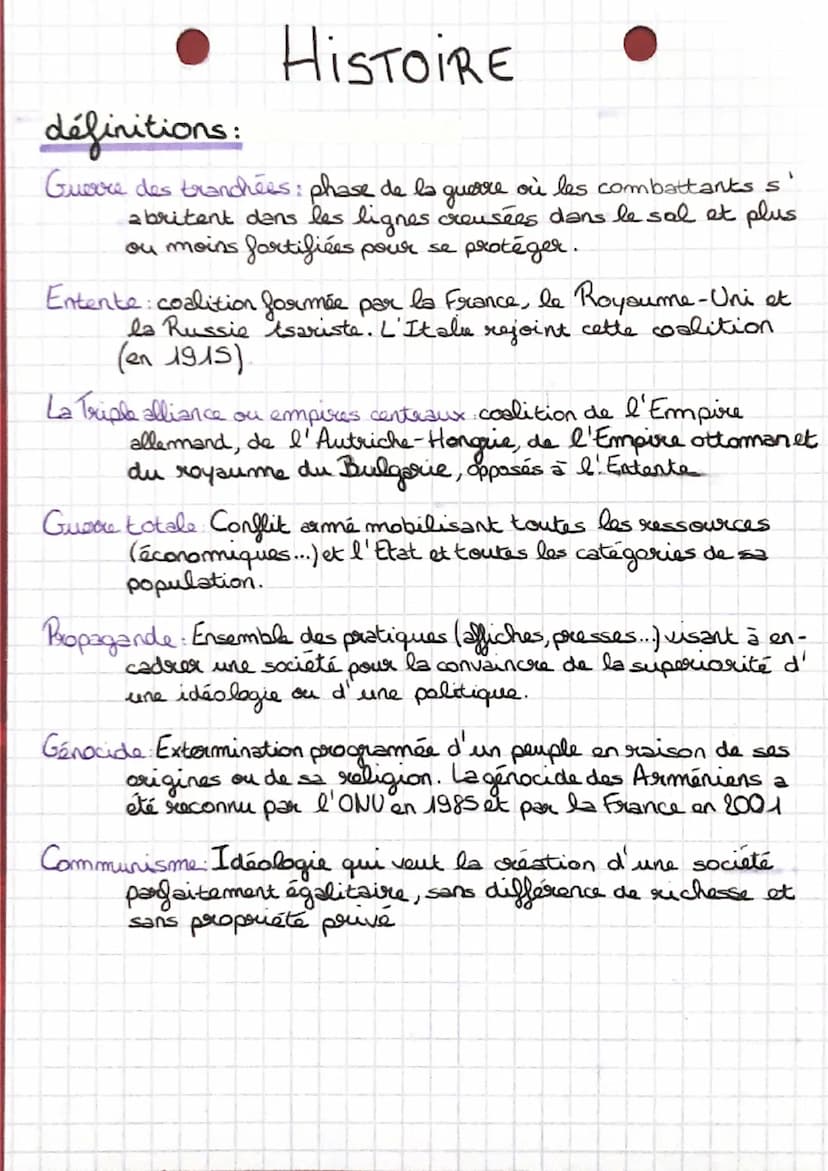 HiSTOiRE
définitions:
Guerre des tranchées: phase de la guerre où les combattants s'
abritent dans les lignes creusées dans le sol et plus
ou moins fortifiées pour se protéger.
Entente: coalition formée par la France, le Royaume-Uni et
la Russie tsariste. L'Italie rejoint cette coalition
(en 1915)
La Triple alliance ou empires centraux: coalition de l'Empire
allemand, de l'Autriche-Hongrie, de l'Empire ottoman et
du royaume du Bulgarie, opposés à l'Entente
Guerre totale: Conflit armé mobilisant toutes les ressources
(économiques...) et l'État et toutes les catégories de sa
population.
Propagande: Ensemble des pratiques (affiches, presses...) visant à en-
cadrer une société pour la convaincre de la superiorité d'
une idéologie ou d'une politique.
Génocide: Extermination programmée d'un peuple en raison de ses
origines ou de sa religion. Le génocide des Arméniens a
été reconnu par l'ONU en 1985 et par la France en 2001
Communisme: Idéologie qui veut la création d'une société
parfaitement égalitaire, sans différence de richesse et
sans propriété privé